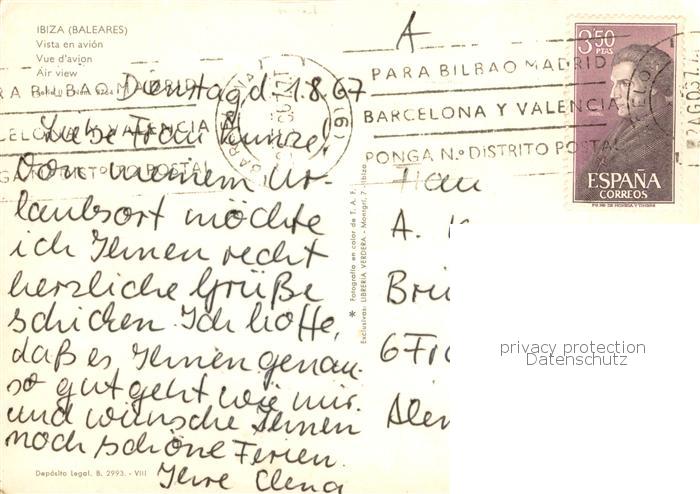 IBIZA (BALEARES)
Vista en avión
Vue d'avion
Air view
A
3'50
PTAS
ESPAÑA
CORREOS
PARA BILBAO MADRID
BARCELONA Y VALENCIA
PONGA N.º DISTRITO POSTAL
Dienstag d. 1.8.67
Liebe Frau Kunze!
Von meinem Ur-
laubsort möchte
ich Ihnen recht
herzliche Grüße
schicken. Ich hoffe,
daß es Ihnen genau-
so gut geht wie mir.
und wünsche Ihnen
noch schöne Ferien.
Ihre Elena
A.
6 Fr
Alem
* Fotografía en color de T. A. F.
Exclusivas: LIBRERIA VERDERA - Montgrí, 7 - Ibiza
privacy protection
Datenschutz
Depósito Legal. B. 2993. - VIII